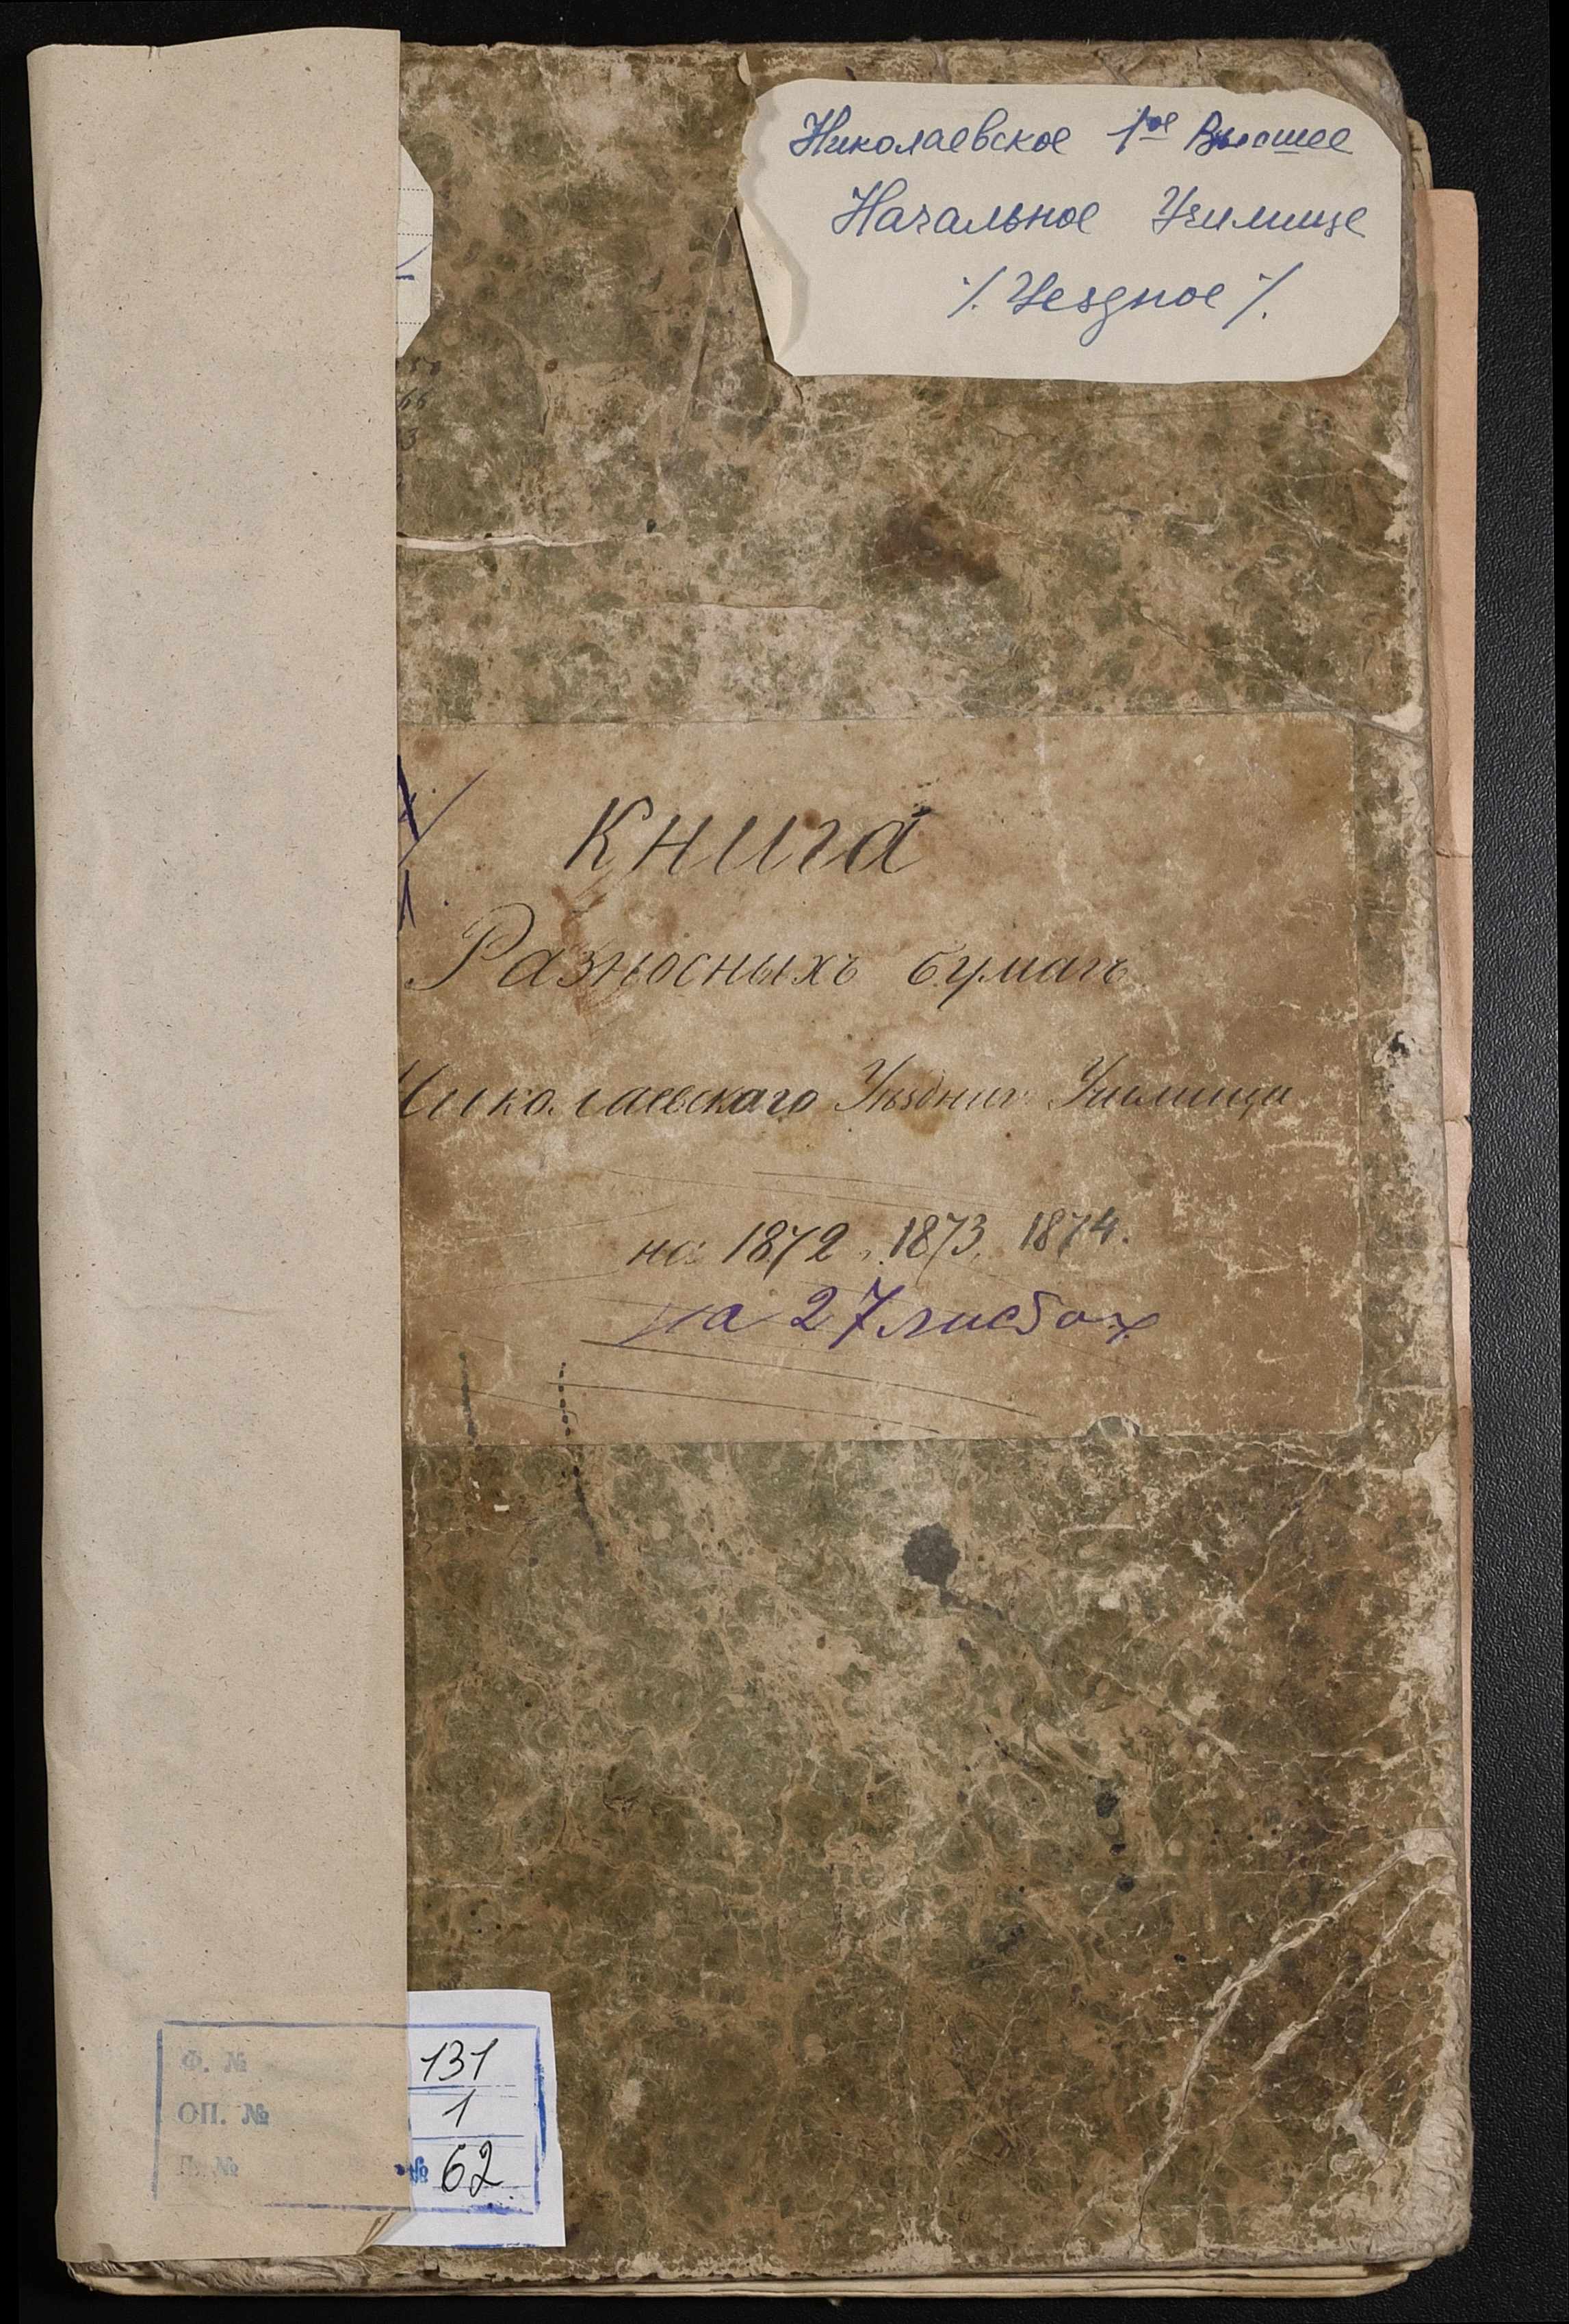 Николаевское 1ое Высшее
Начальное Училище
·/. Уездное ·/.
50
66
3
Книга
Разносныхъ бумагъ
Николаевскаго Уѣзднаг Училища
на 1872, 1873, 1874.
на 27 листах
Ф. № 131
ОП. № 1
№ 62